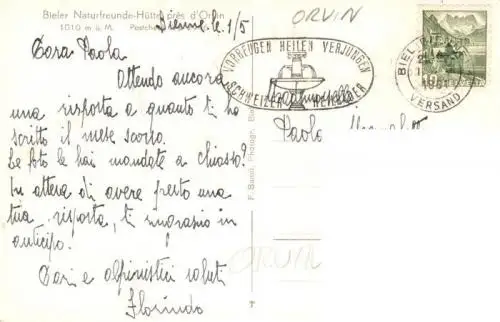 Bieler Naturfreunde-Hütte près d'Orvin
1010 m ü. M.
ORVIN
Bienne le 1/5
Cara Paola
Attendo ancora
una risposta a quanto ti ho
scritto il mese scorso.
Le foto le hai mandate a chiasto?
In attesa di avere presto una
tua risposta, ti ringrazio in
anticipo.
Cari e alpinistici saluti
Florindo
VORBEUGEN HEILEN VERJÜNGEN
SCHWEIZER HEILBÄDER
BIEL
VERSAND
HELVETIA
10
Paola
ORVIN